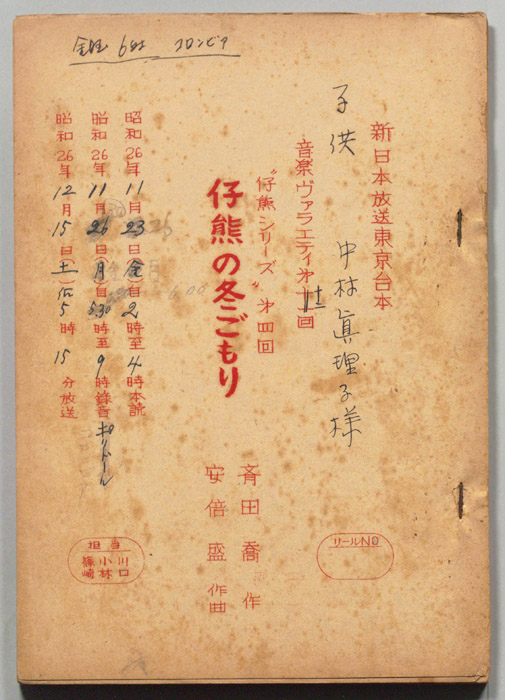 コロンビア
新日本放送東京台本
子供 中村眞理子様
音楽ヴァラエティ第十二回
“仔熊シリーズ”第四回
仔熊の冬ごもり
斉田喬 作
安倍盛 作曲
昭和26年11月23日(金)自2時至4時本読
昭和26年11月26日(月)自5.30時至9時録音 ポリドール
昭和26年12月15日(土)后5時15分放送
リールNO
担当
川口
小林
篠崎